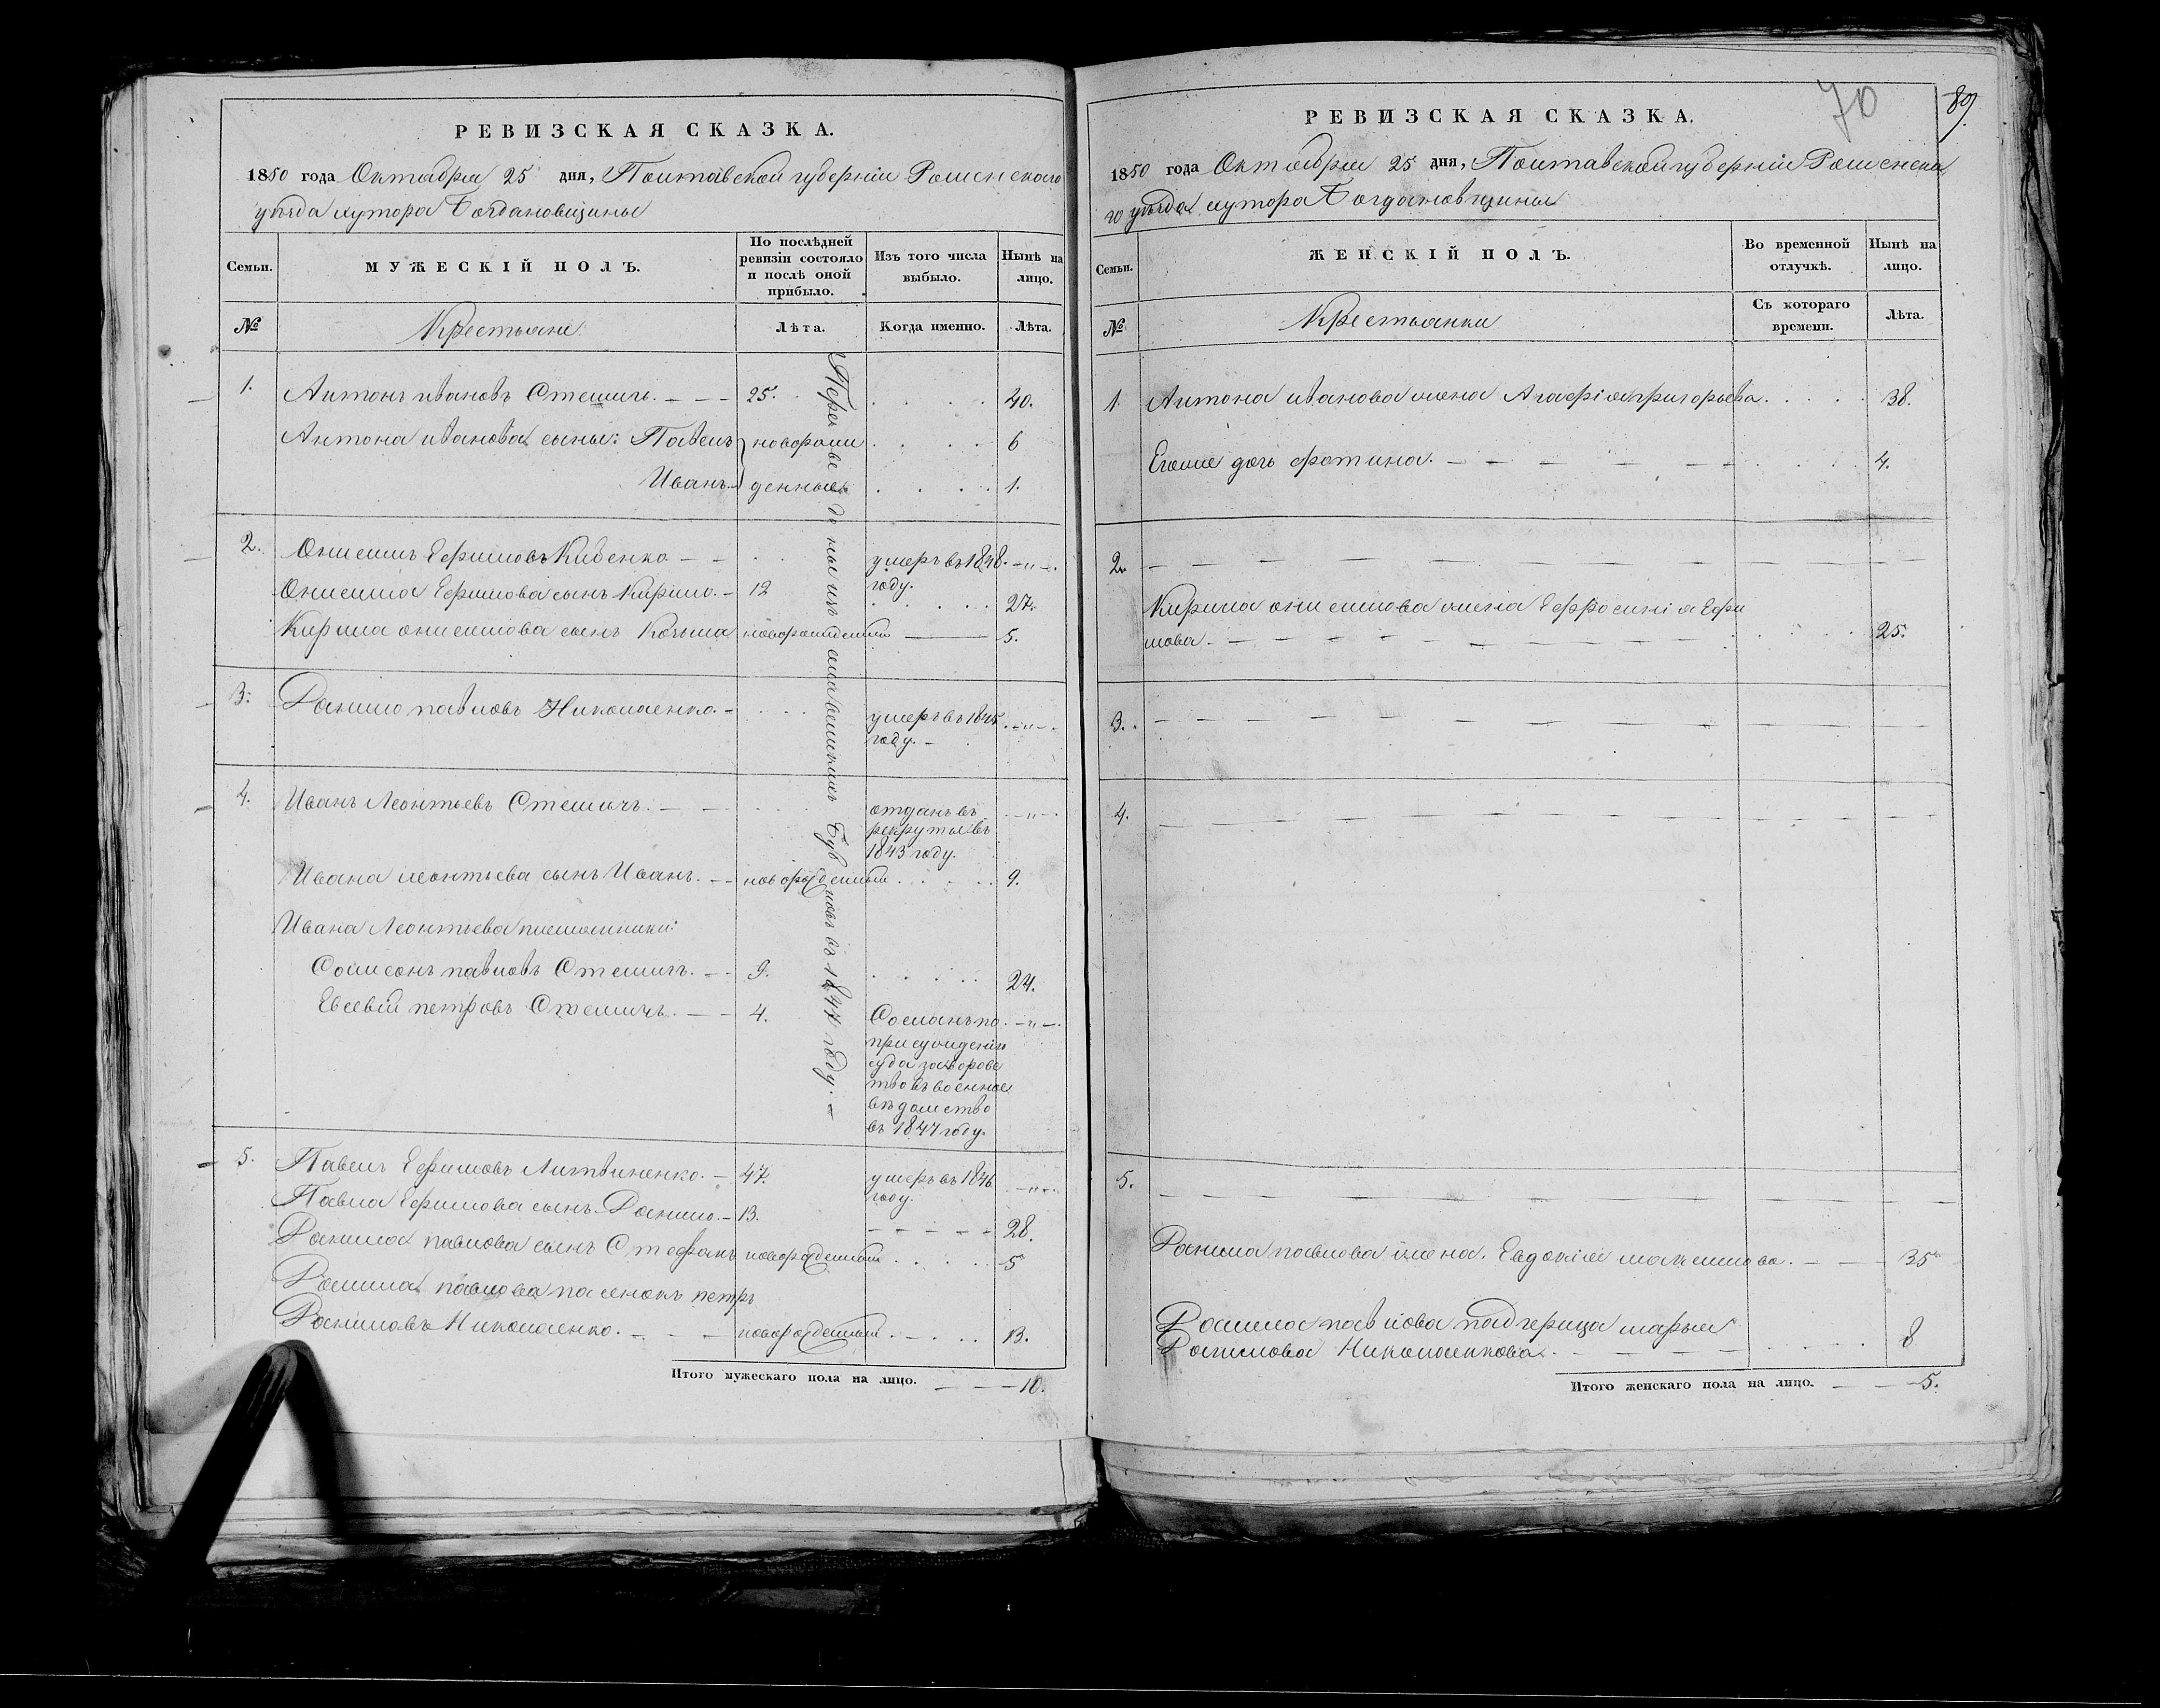 РЕВИЗСКАЯ СКАЗКА.
1850 года Октября 25 дня, Полтавской губерніи Роменскаго
уѣзда хутора Богдановщины
Семьи.
МУЖЕСКІЙ ПОЛЪ.
По послѣдней
ревизіи состояло
и послѣ оной
прибыло.
Изъ того числа
выбыло.
Нынѣ на
лицо.
№
Крестьяне
Лѣта.
Когда именно.
Лѣта.
1. Антонъ ивановъ Стешичъ. 25. 40.
Антона иванова сыны: Павелъ новорож 6
Иванъ. денные 1.
2. Онисимъ Ефимовъ умеръ въ 1848. —„—.
году.
Онисима Ефимова сынъ Кирило. 12 27.
Кирила онисимова сынъ Козьма новорожденный 5.
3. Данило павловъ Николаенко. умеръ въ 1845 —„—.
году.
4. Иванъ Леонтьевъ Стешичъ. отданъ въ —„—.
рекруты въ
1843 году.
Ивана леонтьева сынъ Иванъ. новорожденный 9.
Ивана Леонтьева племянники:
Самсонъ павловъ Стешичъ. 9. 24.
Евсевій петровъ Стешичъ. 4. Сосланъ по —„—.
присужденію
суда за воровс
тво въ военное
вѣдомство
въ 1847 году.
5. Павелъ Ефимовъ Литвиненко. 47. умеръ въ 1846 —„—.
году.
Павла Ефимова сынъ Данило. 13. 28.
Данила павлова сынъ Стефанъ новорожденный 5
Данила павлова пасенокъ петръ
Даниловъ Николаенко. новорожденный 13.
въ 1847 году.
Итого мужескаго пола на лицо. 10.
РЕВИЗСКАЯ СКАЗКА.
70
89.
1850 года Октября 25 дня, Полтавской губерніи Роменска
го уѣзда хутора Богдановщины
Семьи.
ЖЕНСКІЙ ПОЛЪ.
Во временной
отлучкѣ.
Нынѣ на
лицо.
№
Крестьянки
Съ котораго
времени.
Лѣта.
1. Антона иванова жена Агафія григорьева. 38.
Егоже дочь фотина. 4.
2.
Кирила онисимова жена Ефросинія Ефи
мова. 25.
3.
4.
5.
Данила павлова жена. Евдокія максимова. 35
Данила павлова падчерица марья
Данилова Николаенкова. 8
Итого женскаго пола на лицо. 5.